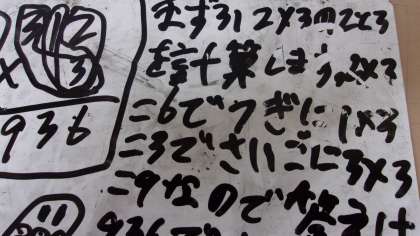 312
×3
936
まず312×3の2×3
を計算しまう。2×3
=6でつぎに1×3
=3でさいごに3×3
=9なので答えは
936で